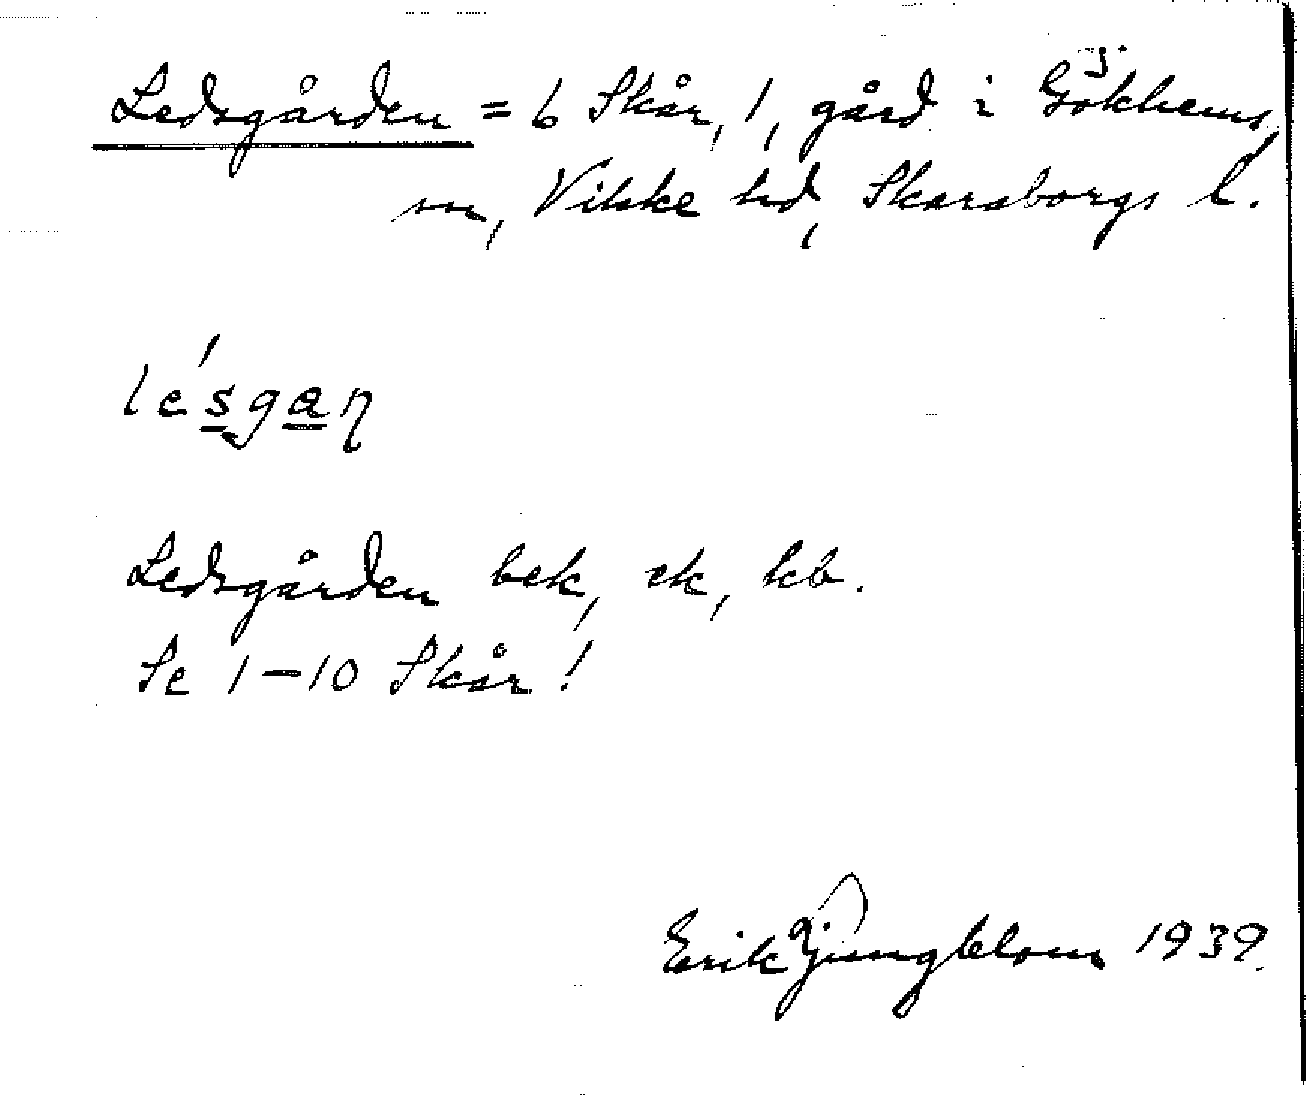 Ledsgården = 6 Skår, 1, gård i Gökhems
sn, Vilske hd, Skaraborgs l.
lésgaŋ
Ledsgården bek, ek, kb.
Se 1–10 Skår!
Erik Ljungblom 1939.